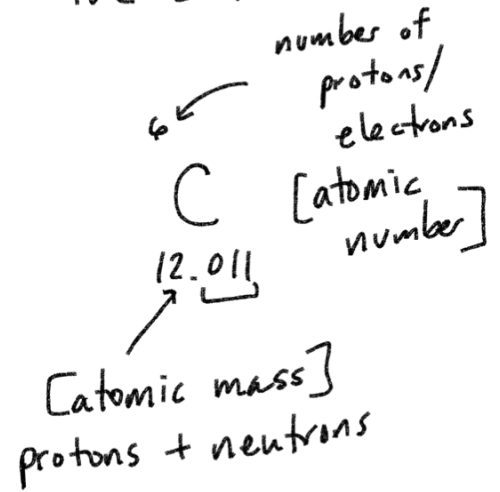 number of
protons/
electrons
[atomic
number]
6
C
12.011
[atomic mass]
protons + neutrons